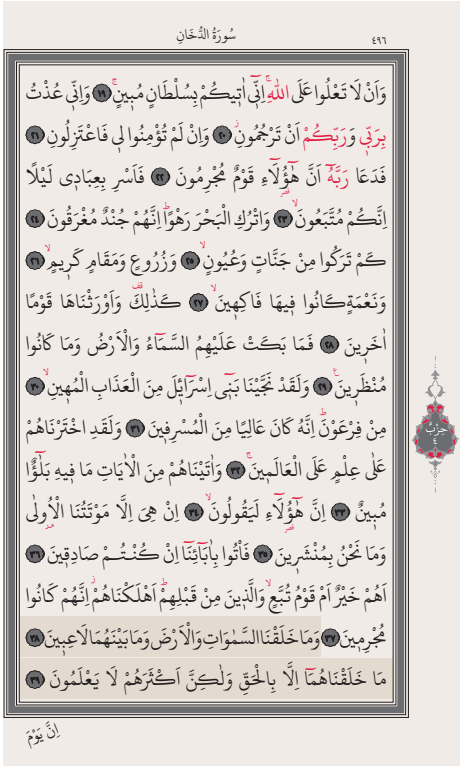 سُورَةُ الدُّخَانِ ٤٩٦
وَاَنْ لَا تَعْلُوا عَلَى اللّٰهِۚ اِنّ۪ٓي اٰت۪يكُمْ بِسُلْطَانٍ مُب۪ينٍۚ ﴿١٩﴾ وَاِنّ۪ي عُذْتُ
بِرَبّ۪ي وَرَبِّكُمْ اَنْ تَرْجُمُونِۘ ﴿٢٠﴾ وَاِنْ لَمْ تُؤْمِنُوا ل۪ي فَاعْتَزِلُونِ ﴿٢١﴾
فَدَعَا رَبَّهُٓ اَنَّ هٰٓؤُ۬لَٓاءِ قَوْمٌ مُجْرِمُونَ ﴿٢٢﴾ فَاَسْرِ بِعِبَاد۪ي لَيْلًا
اِنَّكُمْ مُتَّبَعُونَۙ ﴿٢٣﴾ وَاتْرُكِ الْبَحْرَ رَهْوًاۜ اِنَّهُمْ جُنْدٌ مُغْرَقُونَ ﴿٢٤﴾
كَمْ تَرَكُوا مِنْ جَنَّاتٍ وَعُيُونٍۙ ﴿٢٥﴾ وَزُرُوعٍ وَمَقَامٍ كَر۪يمٍۙ ﴿٢٦﴾
وَنَعْمَةٍ كَانُوا ف۪يهَا فَاكِه۪ينَۙ ﴿٢٧﴾ كَذٰلِكَ۠ وَاَوْرَثْنَاهَا قَوْمًا
اٰخَر۪ينَ ﴿٢٨﴾ فَمَا بَكَتْ عَلَيْهِمُ السَّمَٓاءُ وَالْاَرْضُ وَمَا كَانُوا
مُنْظَر۪ينَ۟ ﴿٢٩﴾ وَلَقَدْ نَجَّيْنَا بَن۪ٓي اِسْرَٓائ۪لَ مِنَ الْعَذَابِ الْمُه۪ينِۙ ﴿٣٠﴾
مِنْ فِرْعَوْنَۜ اِنَّهُ كَانَ عَالِيًا مِنَ الْمُسْرِف۪ينَ ﴿٣١﴾ وَلَقَدِ اخْتَرْنَاهُمْ
عَلٰى عِلْمٍ عَلَى الْعَالَم۪ينَۚ ﴿٣٢﴾ وَاٰتَيْنَاهُمْ مِنَ الْاٰيَاتِ مَا ف۪يهِ بَلٰٓؤٌ۬ا
مُب۪ينٌ ﴿٣٣﴾ اِنَّ هٰٓؤُ۬لَٓاءِ لَيَقُولُونَۙ ﴿٣٤﴾ اِنْ هِيَ اِلَّا مَوْتَتُنَا الْاُو۫لٰى
وَمَا نَحْنُ بِمُنْشَر۪ينَ ﴿٣٥﴾ فَأْتُوا بِاٰبَٓائِنَٓا اِنْ كُنْتُمْ صَادِق۪ينَ ﴿٣٦﴾
اَهُمْ خَيْرٌ اَمْ قَوْمُ تُبَّعٍۙ وَالَّذ۪ينَ مِنْ قَبْلِهِمْۜ اَهْلَكْنَاهُمْۘ اِنَّهُمْ كَانُوا
مُجْرِم۪ينَ ﴿٣٧﴾ وَمَا خَلَقْنَا السَّمٰوَاتِ وَالْاَرْضَ وَمَا بَيْنَهُمَا لَاعِب۪ينَ ﴿٣٨﴾
مَا خَلَقْنَاهُمَٓا اِلَّا بِالْحَقِّ وَلٰكِنَّ اَكْثَرَهُمْ لَا يَعْلَمُونَ ﴿٣٩﴾
حِزْبُ
٤
اِنَّ يَوْمَ